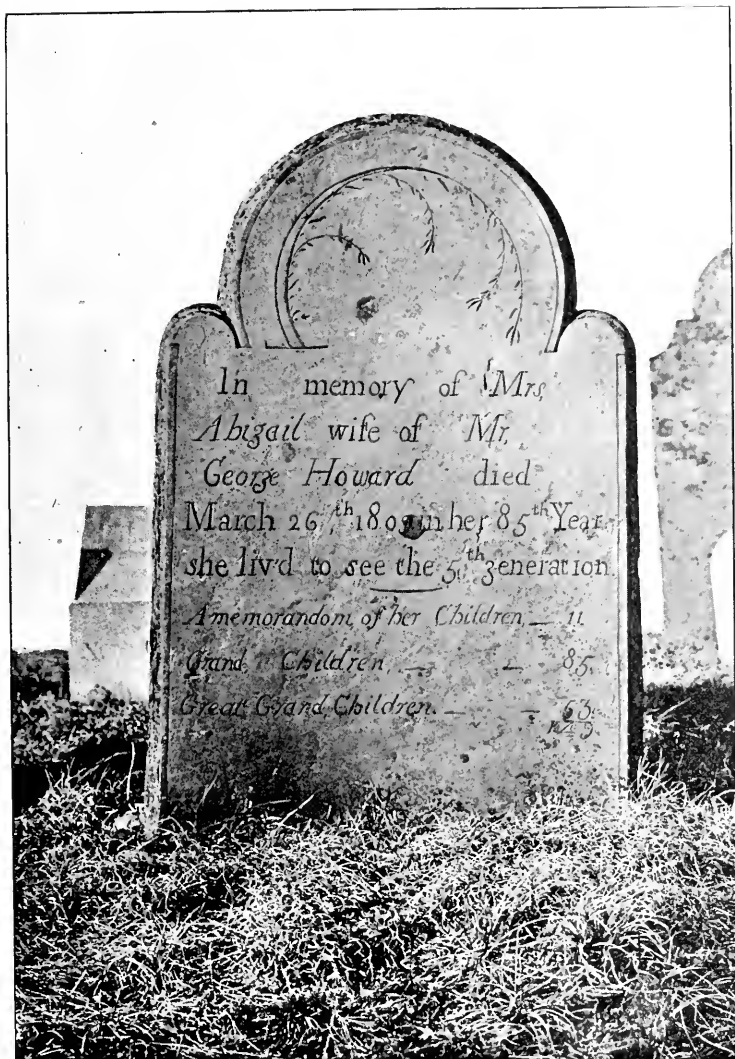 In memory of Mrs,
Abigail wife of Mr,
George Howard died
March 26,th in her 85th Year
she liv'd to see the 5,th generation.
A memorandom, of her Children, — 11
Grand, Children, — — 85,
Great, Grand, Children. — — 53,